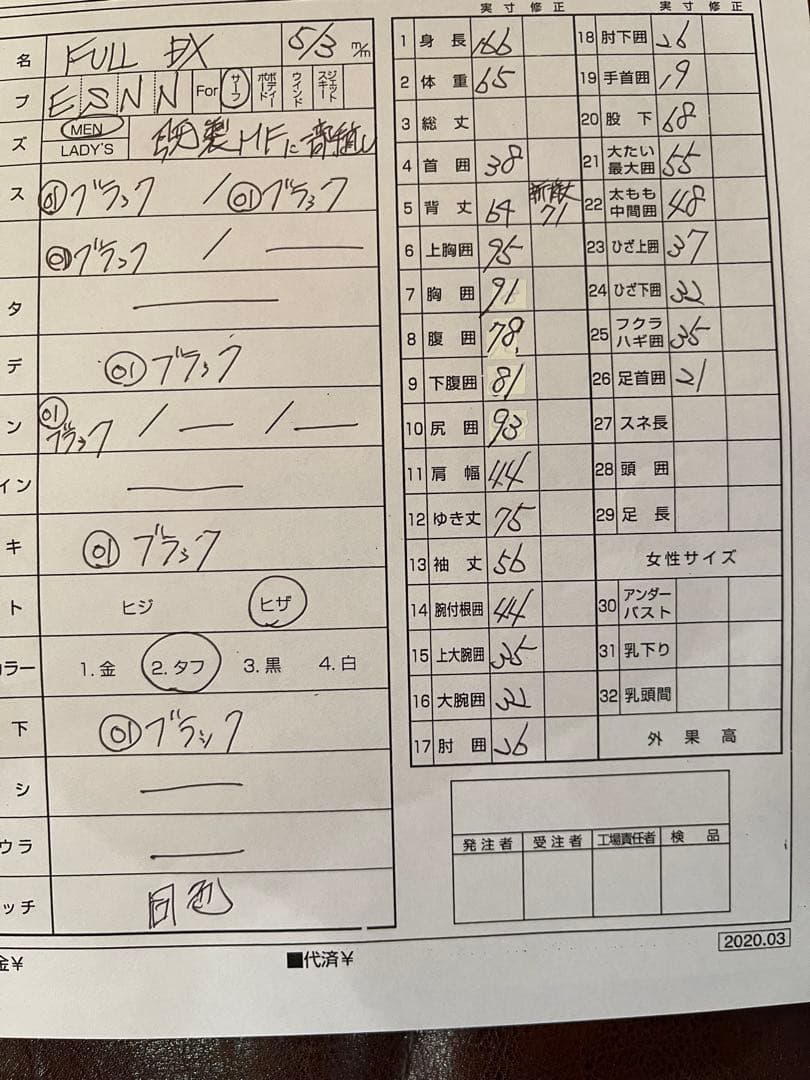 実寸 修正 実寸 修正
名 FULL EX 5/3 m/m
プ E S N N For サーフ ボディーボード ウインド ジェットスキー
ズ MEN LADY'S 既製 MFに
ス 01 ブラック / 01 ブラック
01 ブラック / —
タ —
デ 01 ブラック
ン 01 ブラック / — / —
イン —
キ 01 ブラック
ト ヒジ ヒザ
カラー 1. 金 2. タフ 3. 黒 4. 白
下 01 ブラック
シ —
ウラ —
ッチ 同色
金¥ ■代済¥
1 身長 166
2 体重 65
3 総丈
4 首囲 38
5 背丈 64 71
6 上胸囲 95
7 胸囲 91
8 腹囲 78
9 下腹囲 81
10 尻囲 93
11 肩幅 44
12 ゆき丈 75
13 袖丈 56
14 腕付根囲 44
15 上大腕囲 35
16 大腕囲 32
17 肘囲 26
18 肘下囲 26
19 手首囲 19
20 股下 68
21 大たい最大囲 55
22 太もも中間囲 48
23 ひざ上囲 37
24 ひざ下囲 32
25 フクラハギ囲 35
26 足首囲 21
27 スネ長
28 頭囲
29 足長
女性サイズ
30 アンダーバスト
31 乳下り
32 乳頭間
外果高
発注者 受注者 工場責任者 検品
2020.03